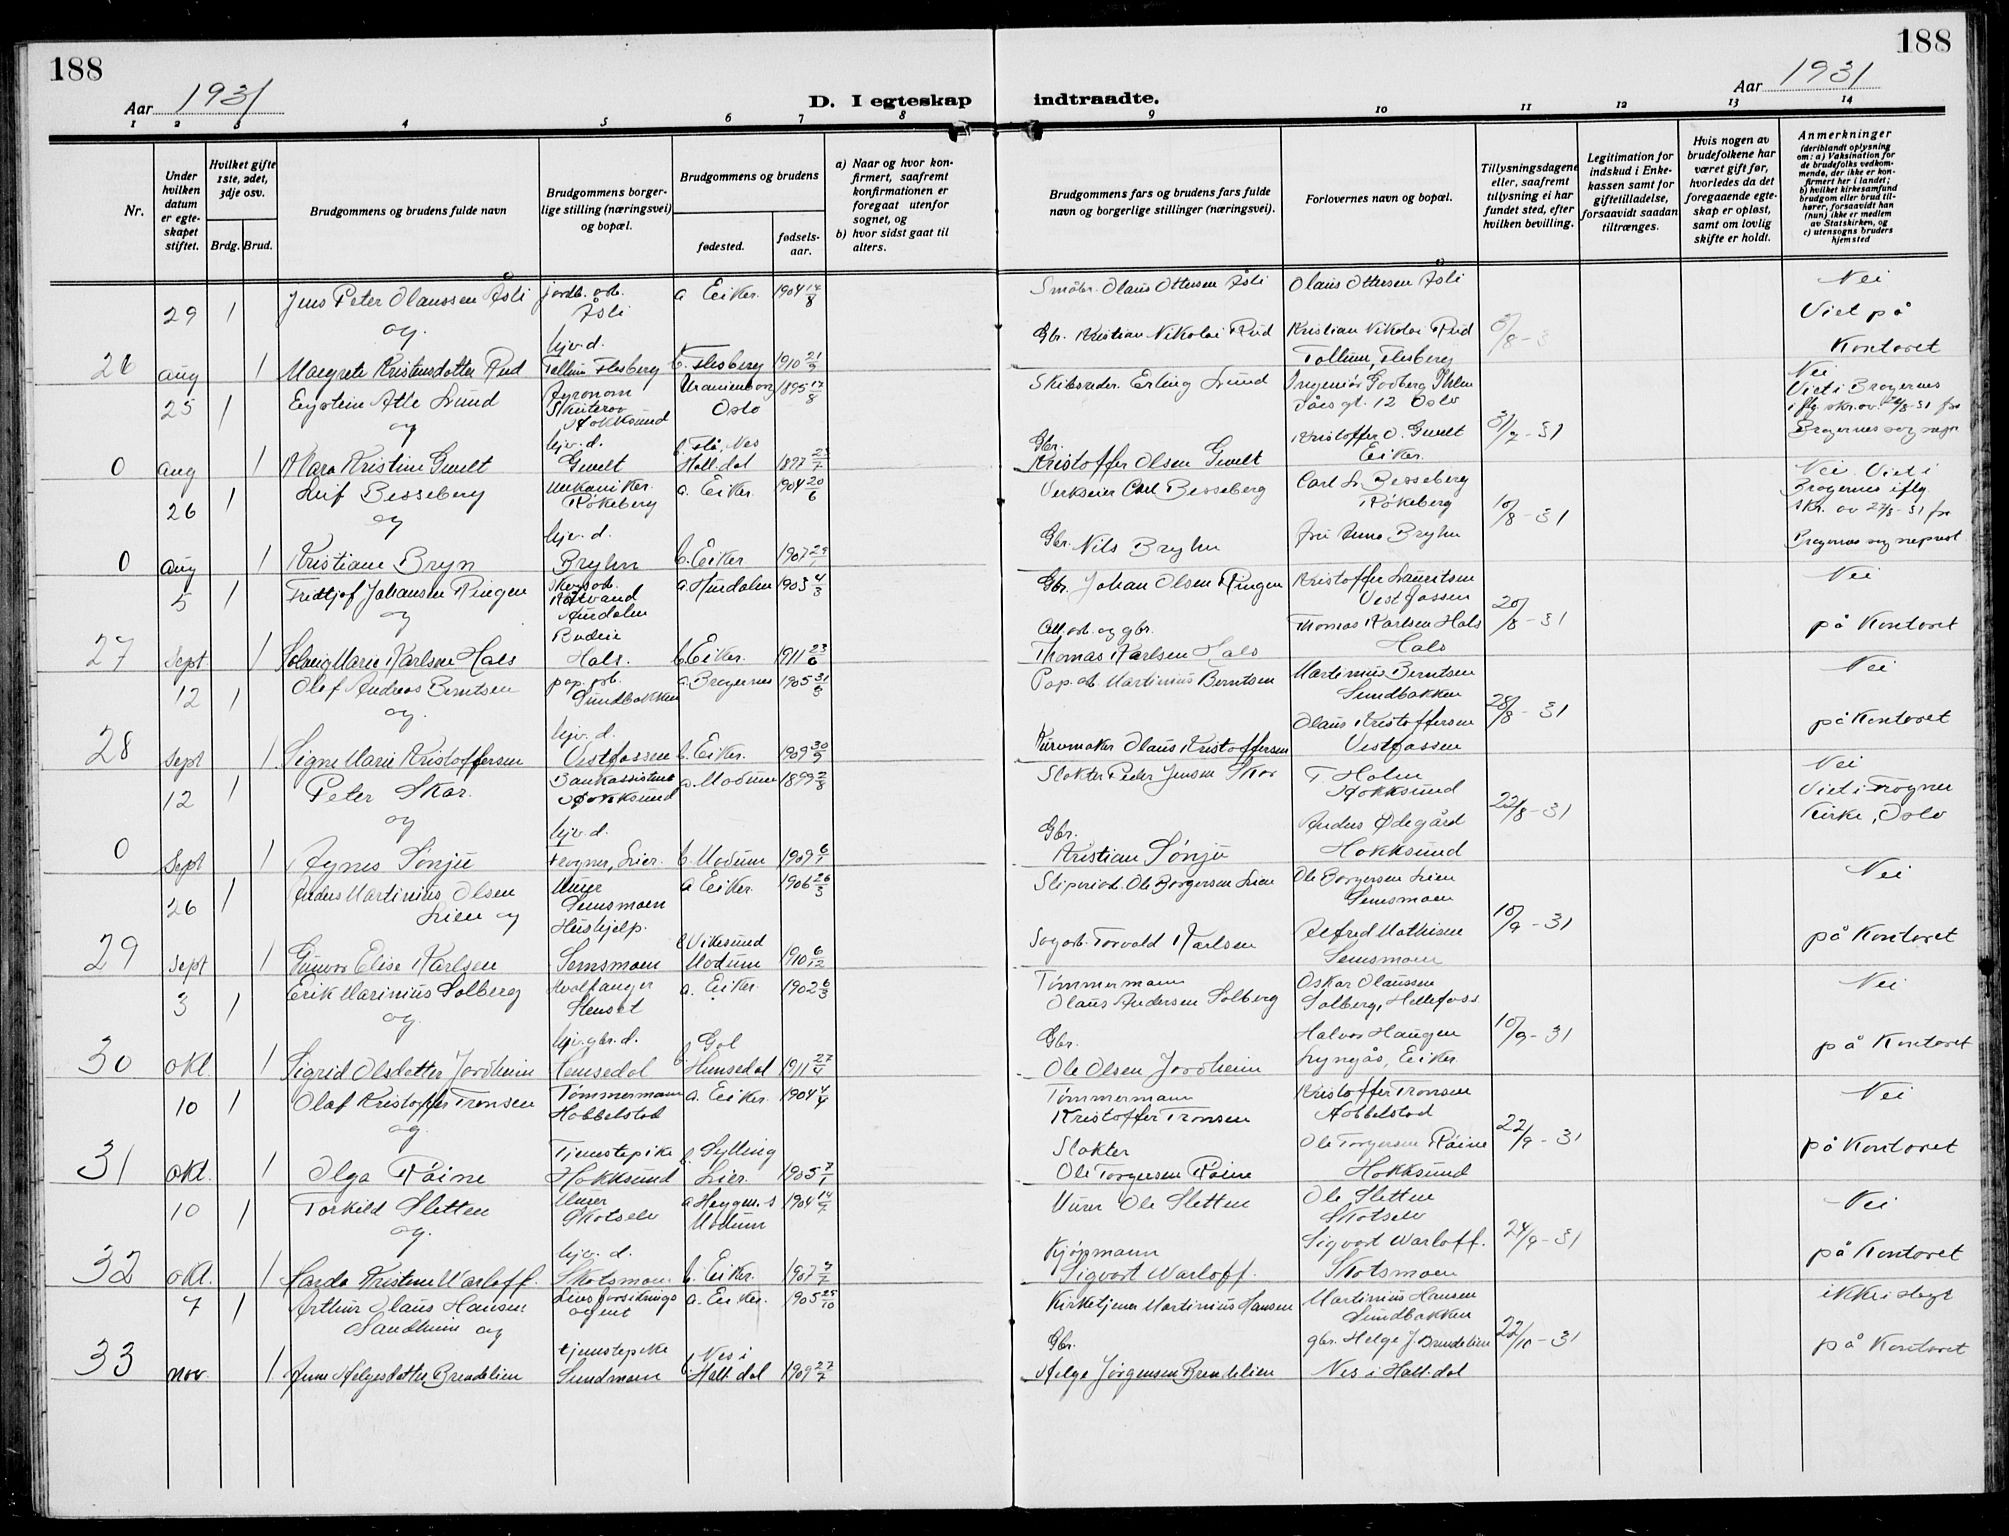 188
188
Aar 1931
D. I egteskap
indtraadte.
Aar 1931
1 2 3 4 5 6 7 8 9 10 11 12 13 14
Nr.
Under hvilken datum er egteskapet stiftet.
Hvilket gifte 1ste, 2det, 3dje osv.
Brdg. Brud.
Brudgommens og brudens fulde navn
Brudgommens borgerlige stilling (næringsvei) og bopæl.
Brudgommens og brudens
fødested.
fødselsaar.
a) Naar og hvor konfirmert, saafremt konfirmationen er foregaat utenfor sognet, og
b) hvor sidst gaat til alters.
Brudgommens fars og brudens fars fulde navn og borgerlige stillinger (næringsvei).
Forlovernes navn og bopæl.
Tillysningsdagene eller, saafremt tillysning ei har fundet sted, efter hvilken bevilling.
Legitimation for indskud i Enkekassen samt for giftetilladelse, forsaavidt saadan tiltrænges.
Hvis nogen av brudefolkene har været gift før, hvorledes da det foregaaende egteskap er opløst, samt om lovlig skifte er holdt.
Anmerkninger
(deriblandt oplysning om: a) Vaksination for de brudefolks vedkommende, der ikke er konfirmert her i landet; b) hvilket kirkesamfund brudgom eller brud tilhører, forsaavidt han (hun) ikke er medlem av Statskirken, og c) utensogns bruders hjemsted
29 1 Jens Peter Olaussen Åsli jordb. arb. a Eiker. 1904 14/8 Småbr. Olaus Ottersen Åsli Olaus Ottersen Åsli Nei
og Åsli Viet på
hjv. d. Gbr. Kristian Nikolai Rud Kristian Nikolai Rud Kontoret
26 aug 1 Margrete Kristensdatter Rud Tollum Flesberg b. Flesberg 1910 21/9 Tollum, Flesberg
25 1 Eystein Atle Lund Agronom Uranienborg 1895 17/8 Skibsreder Erling Lund Nei
og Skuterov Oslo 12 Oslo Viet i Bragernes
Hokksund 31/7-31
hjv. d. b. Flå, Nes Gbr. Kristoffer O. Gulet
0 aug 1 Mara Kristine Gulet Gulet Hall.dal 1897 23/7 Kristoffer Olsen Gulet Eiker.
26 1 Leif Besseberg Mekaniker. a. Eiker. 1904 20/6 Verkseier Carl Besseberg Carl L. Besseberg Nei. Viet i
og Røkeberg Røkeberg 10/8-31 Bragernes iflg.
hjv. d. Gbr. Nils Bryhn frk Anna Bryhn skr. av 27/8-31 fra
0 aug 1 Kristiane Bryn Bryhn b. Eiker 1907 Bragernes sogneprest
5 1 Fridtjof Johansen Ringen Skogsarb. a. Hurdalen 1903 4/3 Gbr. Johan Olsen Ringen Kristoffer Lauritsen Nei
og Hurdalen Vestfossen 20/8-31
Budeie og gbr. Thomas Karlsen Hals på Kontoret
27 Sept 1 Solveig Marie Karlsen Hals Hals. b. Eiker. 1911 23/6 Thomas Karlsen Hals Hals
12 1 Olaf Andreas Berntsen pap. arb. a. Bragernes 1905 Pap. arb. Martinius Berntsen Martinius Berntsen Nei
og. Sundbakken Sundbakken 28/8-31
hjv. d. Olaus Kristoffersen på Kontoret
28 Sept 1 Signe Marie Kristoffersen Vestfossen b. Eiker. 1909 30/9 Kurvmaker Olaus Kristoffersen Vestfossen
12 1 Peter Skar. Bankassistent a. Modum 1899 2/8 Slakter Peder Jensen Skar T. Holm Nei
og Hokksund Hokksund 22/8-31 Viet i Frogner
hjv. d. Gbr. Anders Ødegård Kirke, Oslo
0 Sept 1 Agnes Sønju Frogner, Lier. b. Modum 1909 6/1 Kristian Sønju Hokksund
26 1 Anders Martinius Olsen Murer a Eiker. 1906 26/3 Sliperiarb. Ole Borgersen Lien Ole Borgersen Lien Nei
Lien og Semsmoen Semsmoen 10/9-31
Hushjelp. b Vikesund Sagarb. Torvald Karlsen Alfred Mathisen på Kontoret
29 Sept 1 Gunvor Elise Karlsen Semsmoen Modum 1910 6/12 Semsmoen
3 1 Erik Marinius Solberg a. Eiker. 1902 6/3 Tømmermann Oskar Olaussen Nei
og. Stenset Olaus Andersen Solberg Solberg, Hellefoss
hjv. gbr. d. Gol Gbr. Halvor Haugen 10/9-31 på Kontoret
30 okt. 1 Sigrid Olsdatter Jordheim Hemsedal b. Hemsedal 1911 27/4 Ole Olsen Jordheim Lyngås, Eiker.
10 1 Olaf Kristoffer Tronsen Tømmermann a. Eiker. 1904 4/4 Tømmermann Kristoffer Tronsen Nei
og. Hobbelstad Kristoffer Tronsen Hobbelstad 22/9-31
Tjenestepike b. Sylling Slakter Ole Torgersen Råine på Kontoret
31 okt. 1 Olga Råine Hokksund Lier. 1905 7/1 Ole Torgersen Råine Hokksund
10 1 Torkild Sletten Murer a Heggen s 1904 Murer Ole Sletten Ole Sletten Nei
og. Skotselv Modum Skotselv 24/9-31
hjv. d. Kjøpmann Sigvart Warloff. på Kontoret
32 okt. 1 Harda Kristine Warloff. Skotsmoen. b. Eiker. 1907 Sigvart Warloff. Skotsmoen
7 1 Arthur Olaus Hansen Livsforsikrings a. Eiker. 1905 25/10 Kirketjener Martinius Hansen Martinius Hansen ikke i slegt
Sandheim og agent Sundbakken 22/10-31
tjenestepike b. Nes i Gbr. gbr. Helge J. Brendelien på Kontoret
33 nov. 1 Anne Helgesdatter Brendelien Sundmoen Hall.dal 1909 27/7 Helge Jørgensen Brendelien Nes i Hall.dal